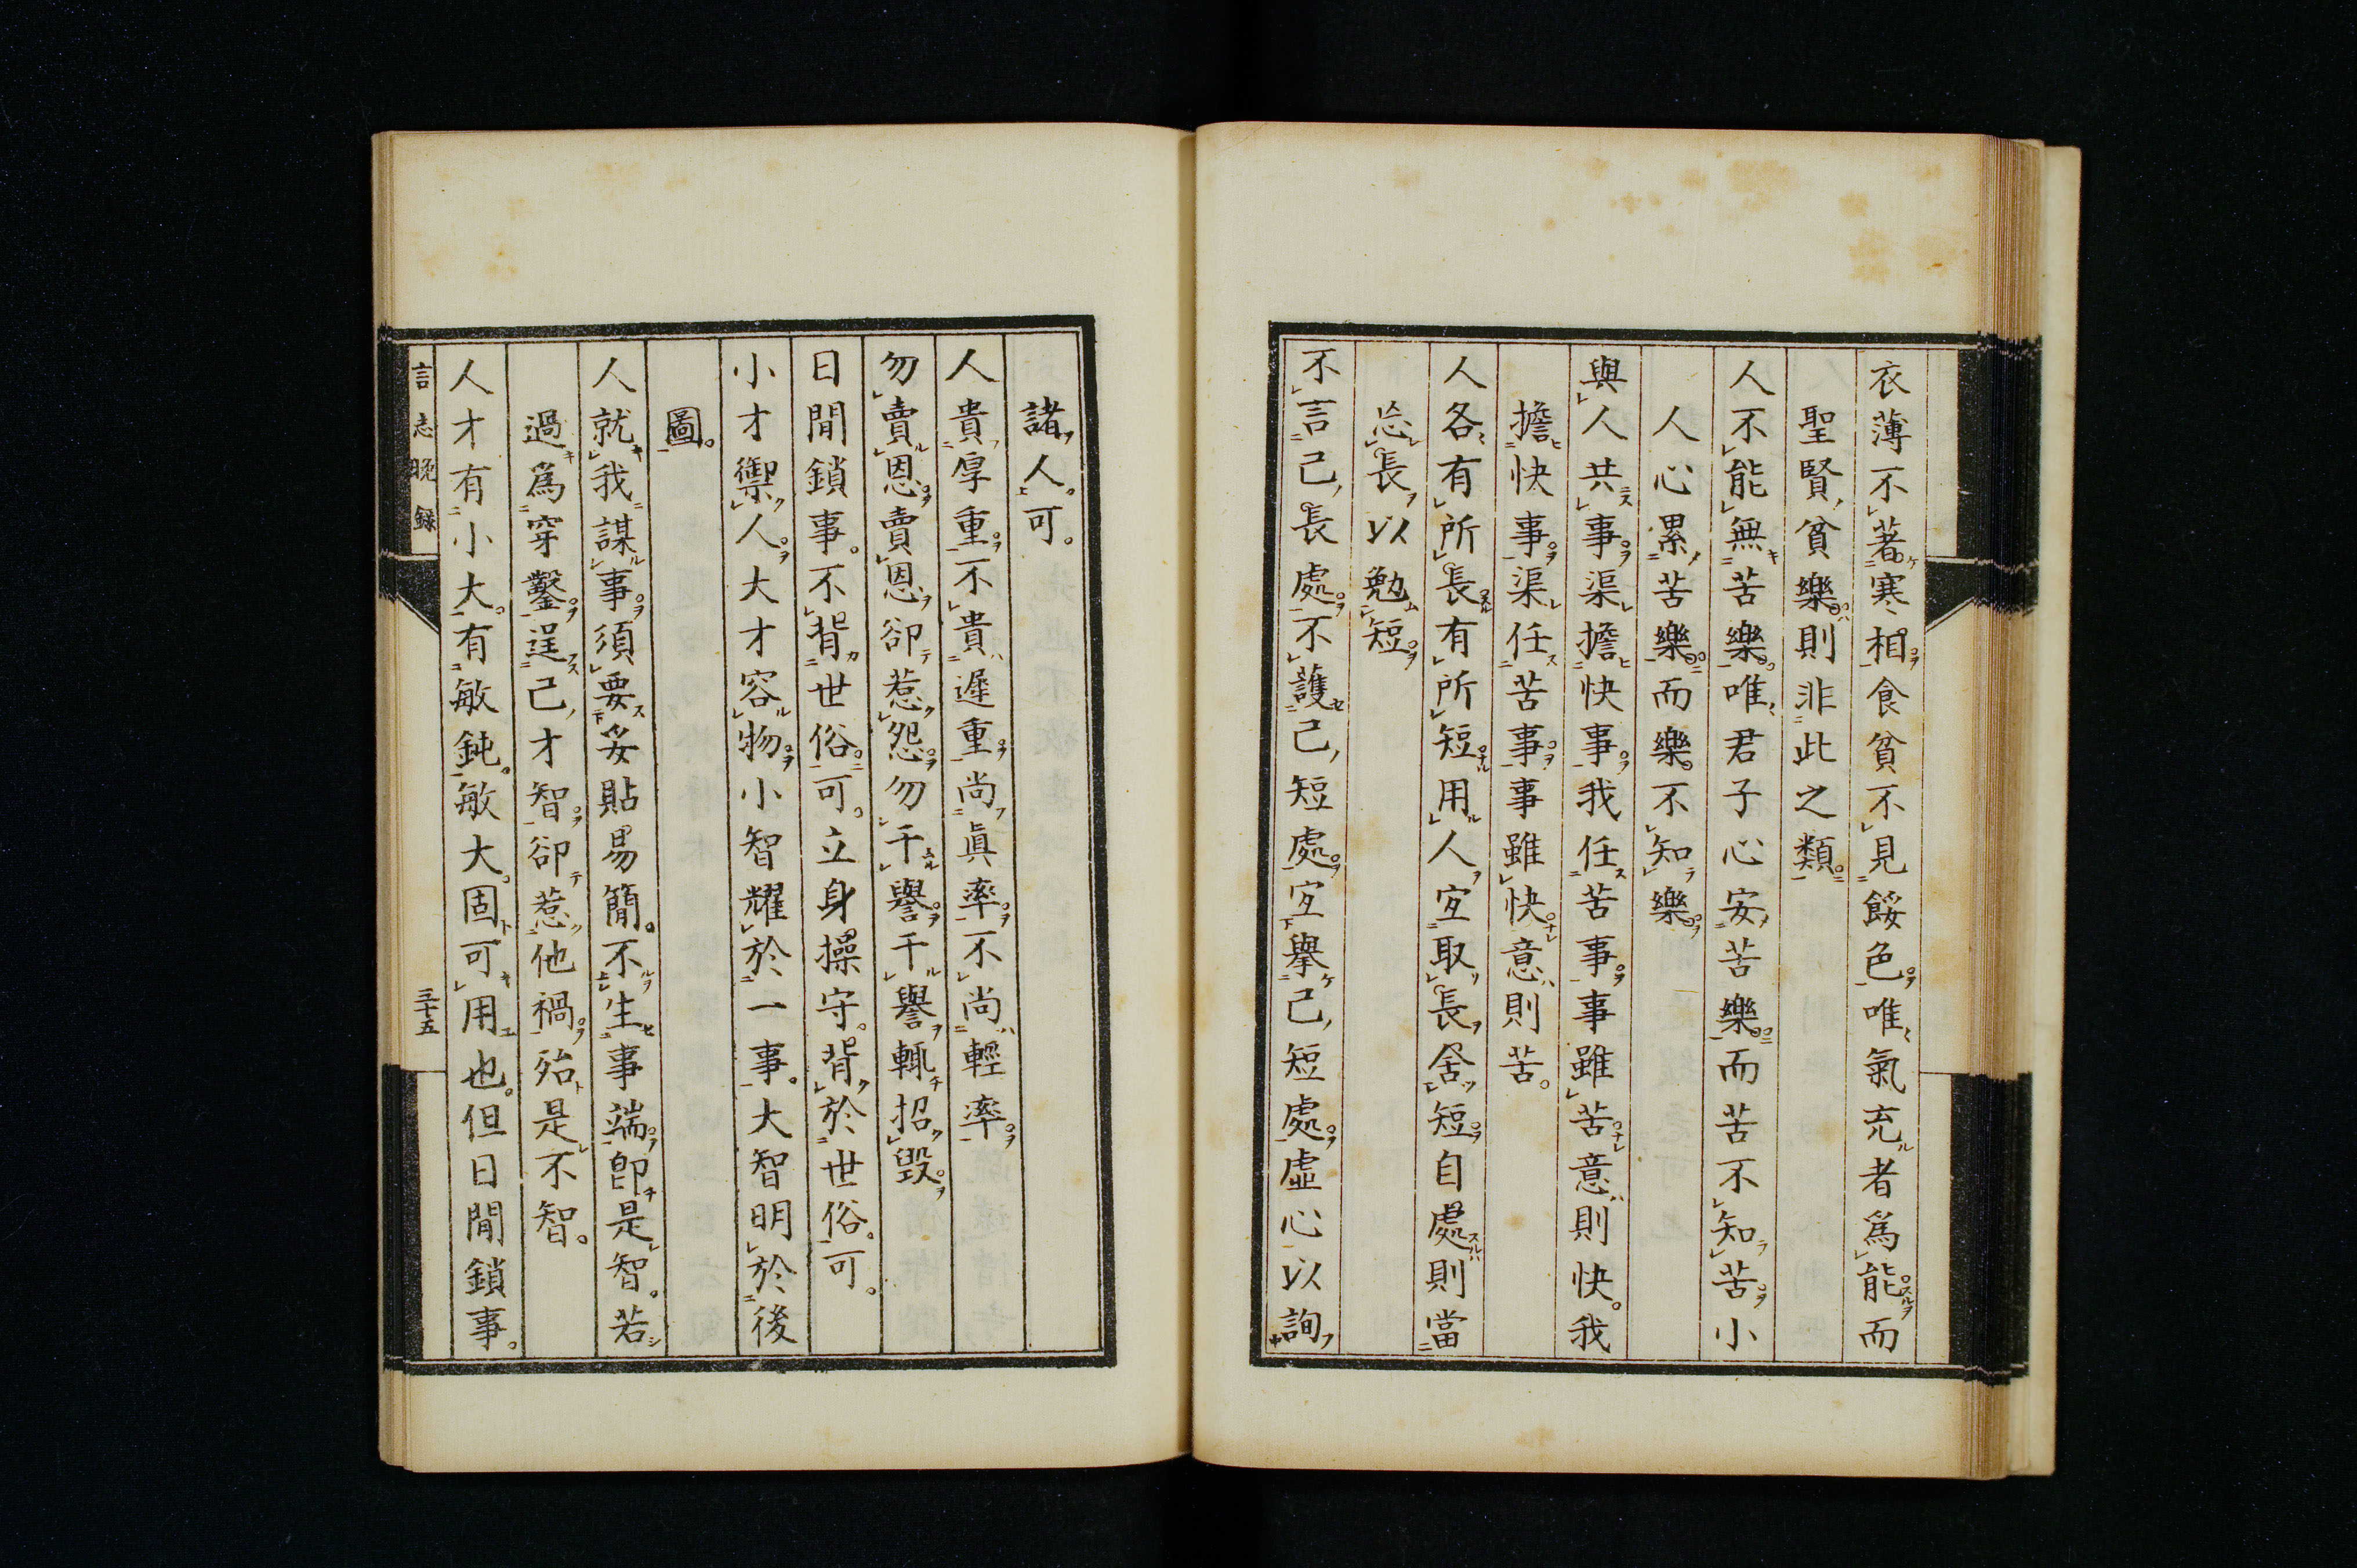 衣薄不著寒相食貧不見餒色唯氣充者爲能而
聖賢貧樂則非此之類
人不能無苦樂唯君子心安苦樂而苦不知苦小
人心累苦樂而樂不知樂
與人共事渠擔快事我任苦事事雖苦意則快我
擔快事渠任苦事事雖快意則苦
人各有所長有所短用人宜取長舍短自處則當
忘長以勉短
不言己長處不護己短處宜擧己短處虛心以詢
諸人可
人貴厚重不貴遲重尚眞率不尚輕率
勿賣恩賣恩卻惹怨勿干譽干譽輒招毀
日間鎖事不背世俗可立身操守背於世俗可
小才禦人大才容物小智耀於一事大智明於後
圖
人就我謀事須要妥貼易簡不生事端卽是智若
過爲穿鑿逞己才智卻惹他禍殆是不智
人才有小大有敏鈍敏大固可用也但日間鎖事
言志晚録
三十五